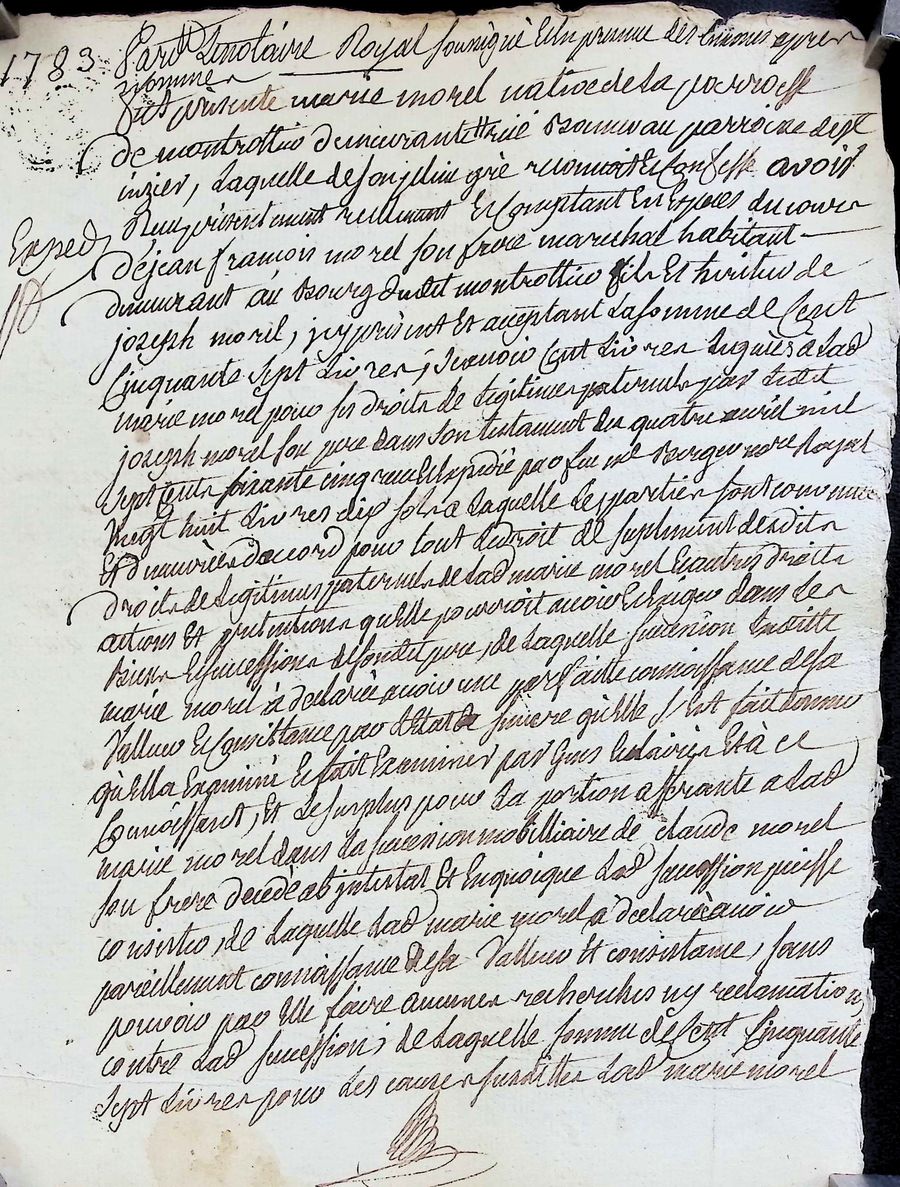 1783
Pard. Lenotaire Royal soussigné Et En presence des temoins apres
nommés
fut présente marie morel native de la parroisse
de montrottier demeurante parroisse de st
inzier, Laquelle de son plein gré reconnoit Et Confesse avoir
Reçu présentement réellement Et Comptant En Especes du cours
Exped
de jean françois morel son frere marechal habitant
demeurant au Bourg dudit montrottier fils Et heritier de
joseph morel, icy présent Et acceptant La somme de Cent
Cinquante Sept Livres, Scavoir Cent Livres Leguées à Lad
marie morel pour ses droits de Legitimes paternels par Ledit
joseph morel son pere dans son testament du quatre avril mil
sept cents soixante cinq reçu Et Expedié par feu me Bourgeu nore Royal
vingt huit Livres dix sols a Laquelle Les parties sont convenues
Et demeurées d'accord pour tout de droit de suplement desdits
droits de Legitimes paternels de Lad marie morel Et autres droits
actions Et prétentions qu'elle pourroit avoir Et Exiger dans Les
Biens Et successions de son dit pere, de Laquelle succession Ladite
marie morel à declaré avoir une parfaite connoissance de sa
Valleur Et Consistance par L'Etat sincere qu'elle s'Est fait donner
qu'Ella Examiné Et fait Examiner par Gens de La vie Et à ce
Connoissant, Et Le surplus pour La portion afferante a Lad
marie morel dans La succession mobilliaire de claude morel
son frere decedé abintestat Et En quoique Lad succession puisse
consister, de Laquelle Lad marie morel à declaré avoir
pareillement connoissance de sa Valleur Et consistance, sans
pouvoir par Elle faire aucunes recherches ny reclamation,
contre Lad succession; de Laquelle somme de Cent Cinquante
Sept Livres pour Les causes susdittes Lad marie morel